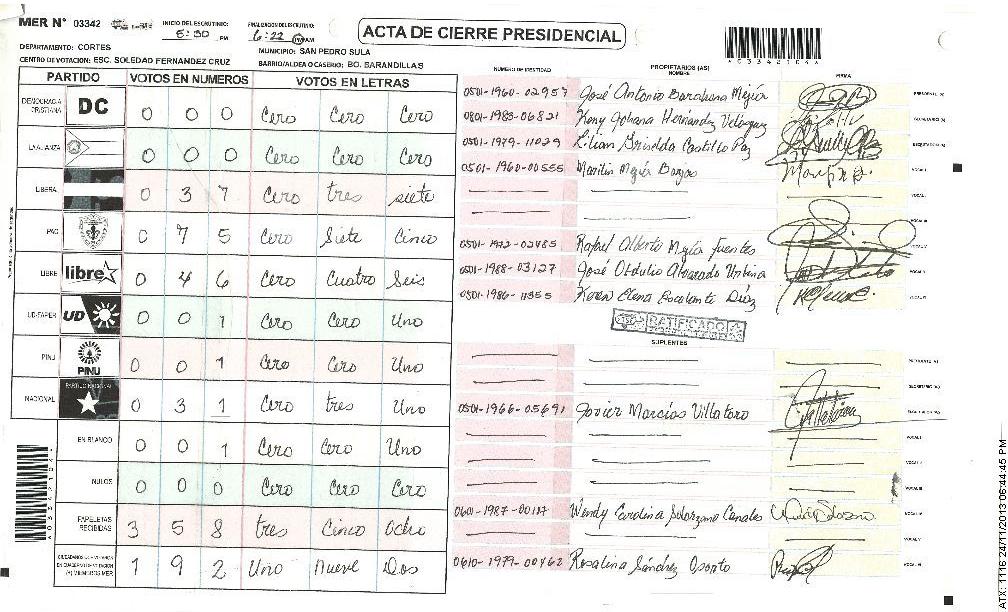 MER N° 03342
INICIO DEL ESCRUTINIO:
5:30 PM
FINALIZACION DEL ESCRUTINIO:
6:22 PM AM
ACTA DE CIERRE PRESIDENCIAL
DEPARTAMENTO: CORTES
MUNICIPIO: SAN PEDRO SULA
CENTRO DE VOTACION: ESC. SOLEDAD FERNANDEZ CRUZ
BARRIO/ALDEA O CASERIO: BO. BARANDILLAS
PARTIDO VOTOS EN NUMEROS VOTOS EN LETRAS
DEMOCRACIA CRISTIANA DC 0 0 0 Cero Cero Cero
LA ALIANZA 0 0 0 Cero Cero Cero
LIBERAL 0 3 7 Cero tres siete
PAC 0 7 5 Cero Siete Cinco
LIBRE libre 0 4 6 Cero Cuatro Seis
UD-FAPER UD 0 0 1 Cero Cero Uno
PINU PINU 0 0 1 Cero Cero Uno
NACIONAL PARTIDO NACIONAL 0 3 1 Cero tres Uno
EN BLANCO 0 0 1 Cero Cero Uno
NULOS 0 0 0 Cero Cero Cero
PAPELETAS RECIBIDAS 3 5 8 tres Cinco Ocho
1 9 2 Uno nueve Dos
A03342104A
NUMERO DE IDENTIDAD
PROPIETARIOS (AS)
NOMBRE
FIRMA
0501-1960-02957 José Antonio Barahona Mejía PRESIDENTE (A)
0801-1983-06821 Keny Johana Hernandez Velasquez SECRETARIO (A)
0501-1979-11029 Lilian Griselda Castillo Paz ESCRUTADOR (A)
0501-1960-00555 Marilin Mejía Barjas VOCAL I
0501-1972-02485 Rafael Alberto Mejía fuentes
0501-1988-03127 José Obdulio Alvarado Urbina
0501-1986-11355 Karen Elena Escalante Díaz
RATIFICADO
SUPLENTES
PRESIDENTE (A)
SECRETARIO (A)
0501-1966-05691 Javier Marcías Villatoro ESCRUTADOR (A)
VOCAL I
0601-1987-00117 Wendy Carolina Solorzano Canales
0610-1979-00462 Rosalina Sánchez Osorto
ATX: 1116 24/11/2013 06:44:45 PM